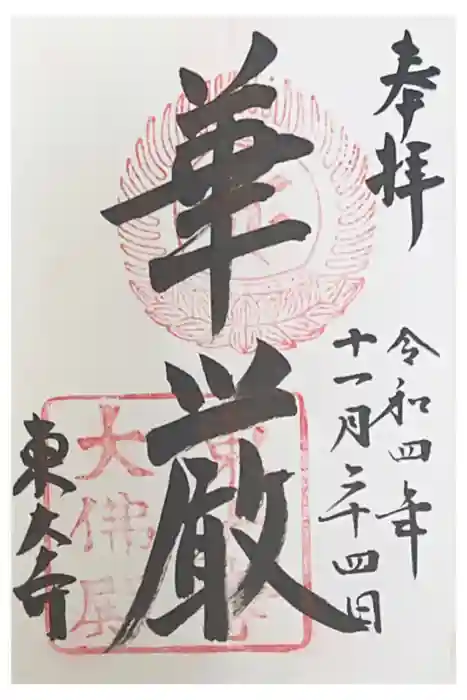 奉拝
令和四年
十一月二十四日
華厳
東大寺
大佛殿